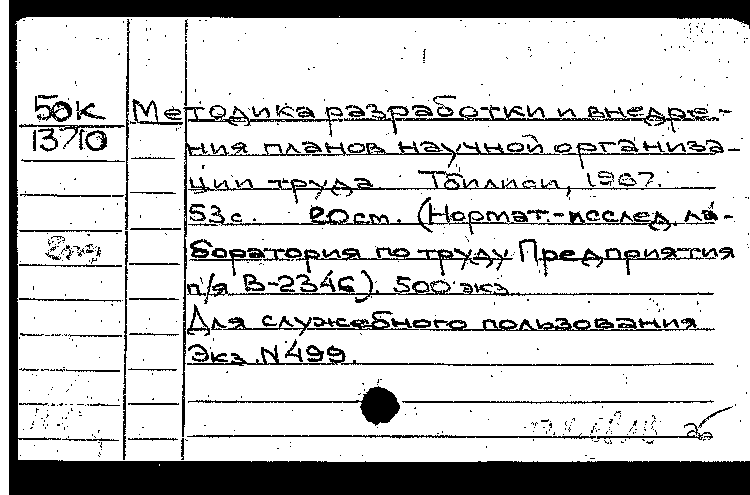 50К Методика разработки и внедре-
13710 ния планов научной организа-
ции труда Тбилиси, 1967.
53с. 20см. (Нормат.-исслед. ла-
боратория по труду Предприятия
п/я В-2346). 500 экз
Для служебного пользования
Экз. N499.